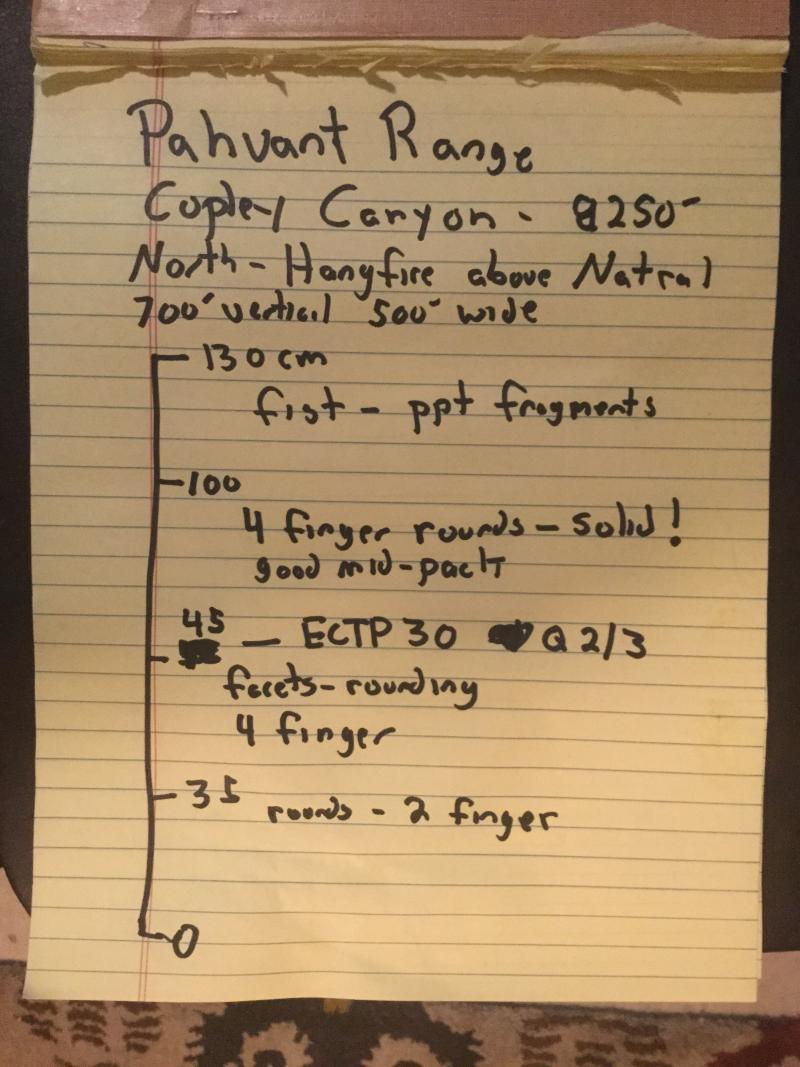 Pahvant Range
Copley Canyon - 8250'
North - Hangfire above Natral
700' vertical 500' wide
130 cm
fist - ppt fragments
100
4 finger rounds - solid!
good mid-pack
45 - ECTP 30 Q 2/3
facets - rounding
4 finger
35 rounds - 2 finger
0